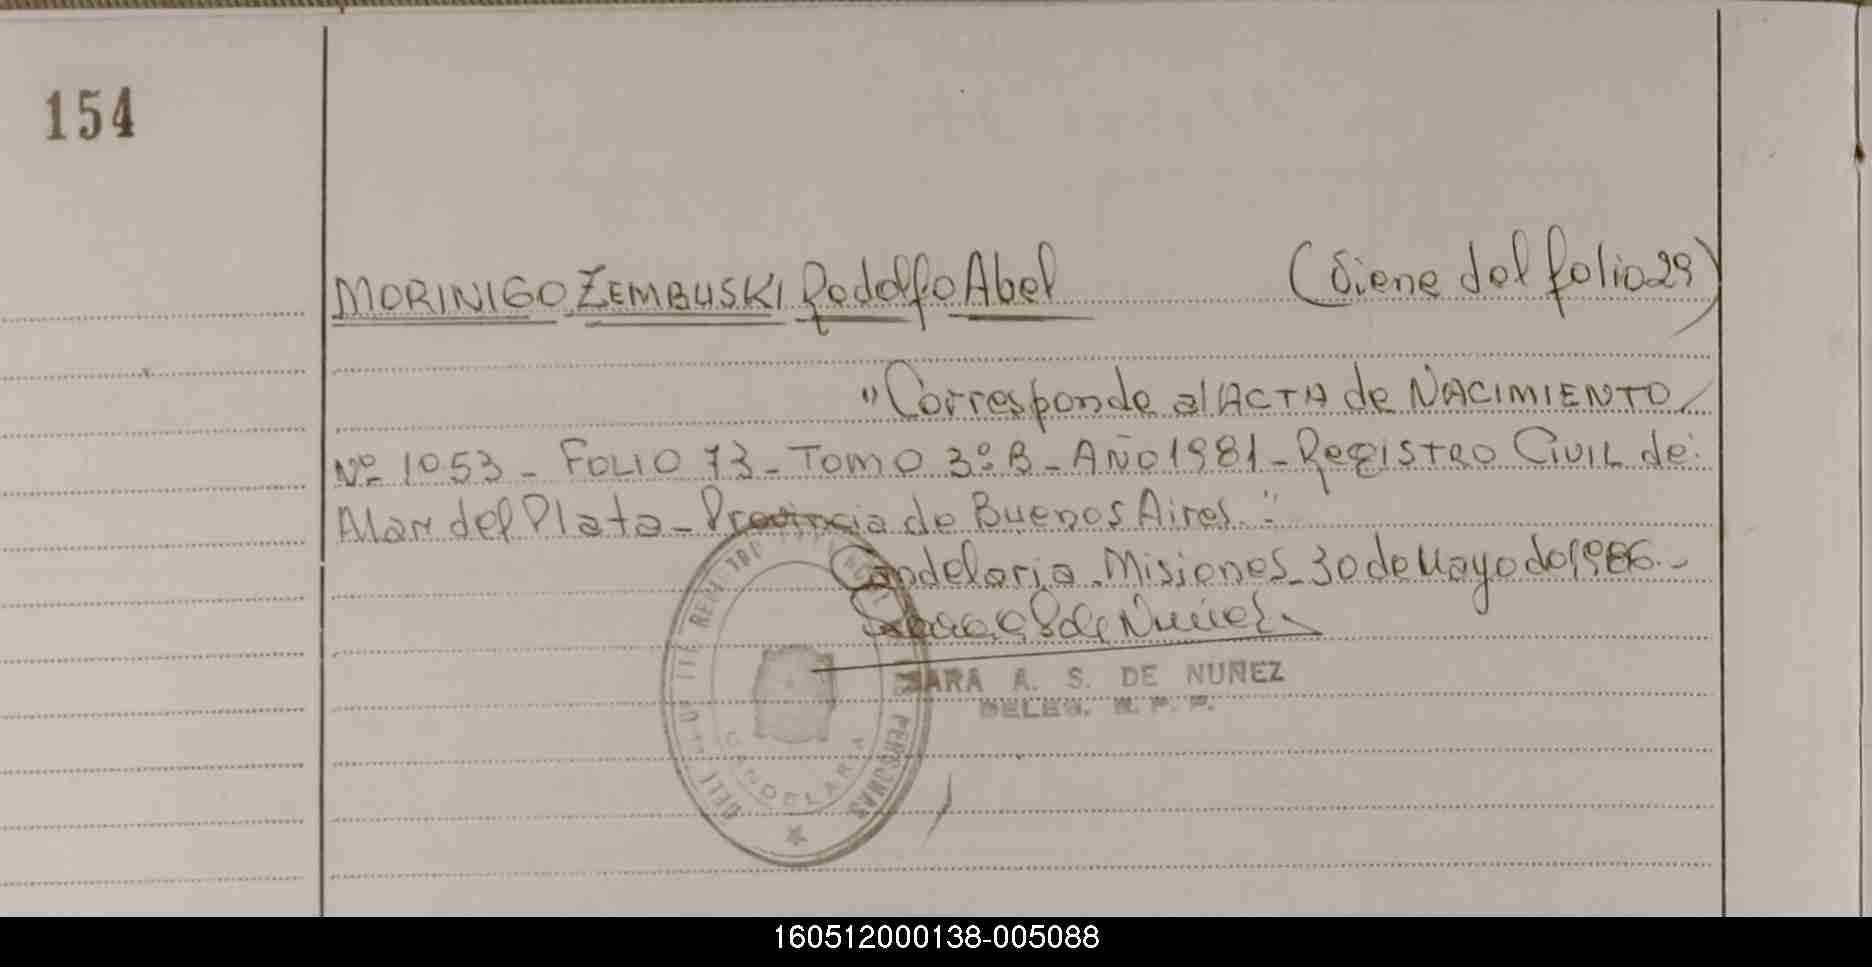 154
MORINIGO ZEMBUSKI Rodolfo Abel (Viene del folio 29)
"Corresponde al ACTA de NACIMIENTO
Nº 1053 - FOLIO 73 - TOMO 3º B - AÑO 1981 - REGISTRO CIVIL de:
Mar del Plata - Provincia de Buenos Aires."
Candelaria - Misiones - 30 de Mayo de 1986.-
SARA A. S. DE NUÑEZ
DELEG. R. P. P.
PERSONAS
CANDELARIA
160512000138-005088